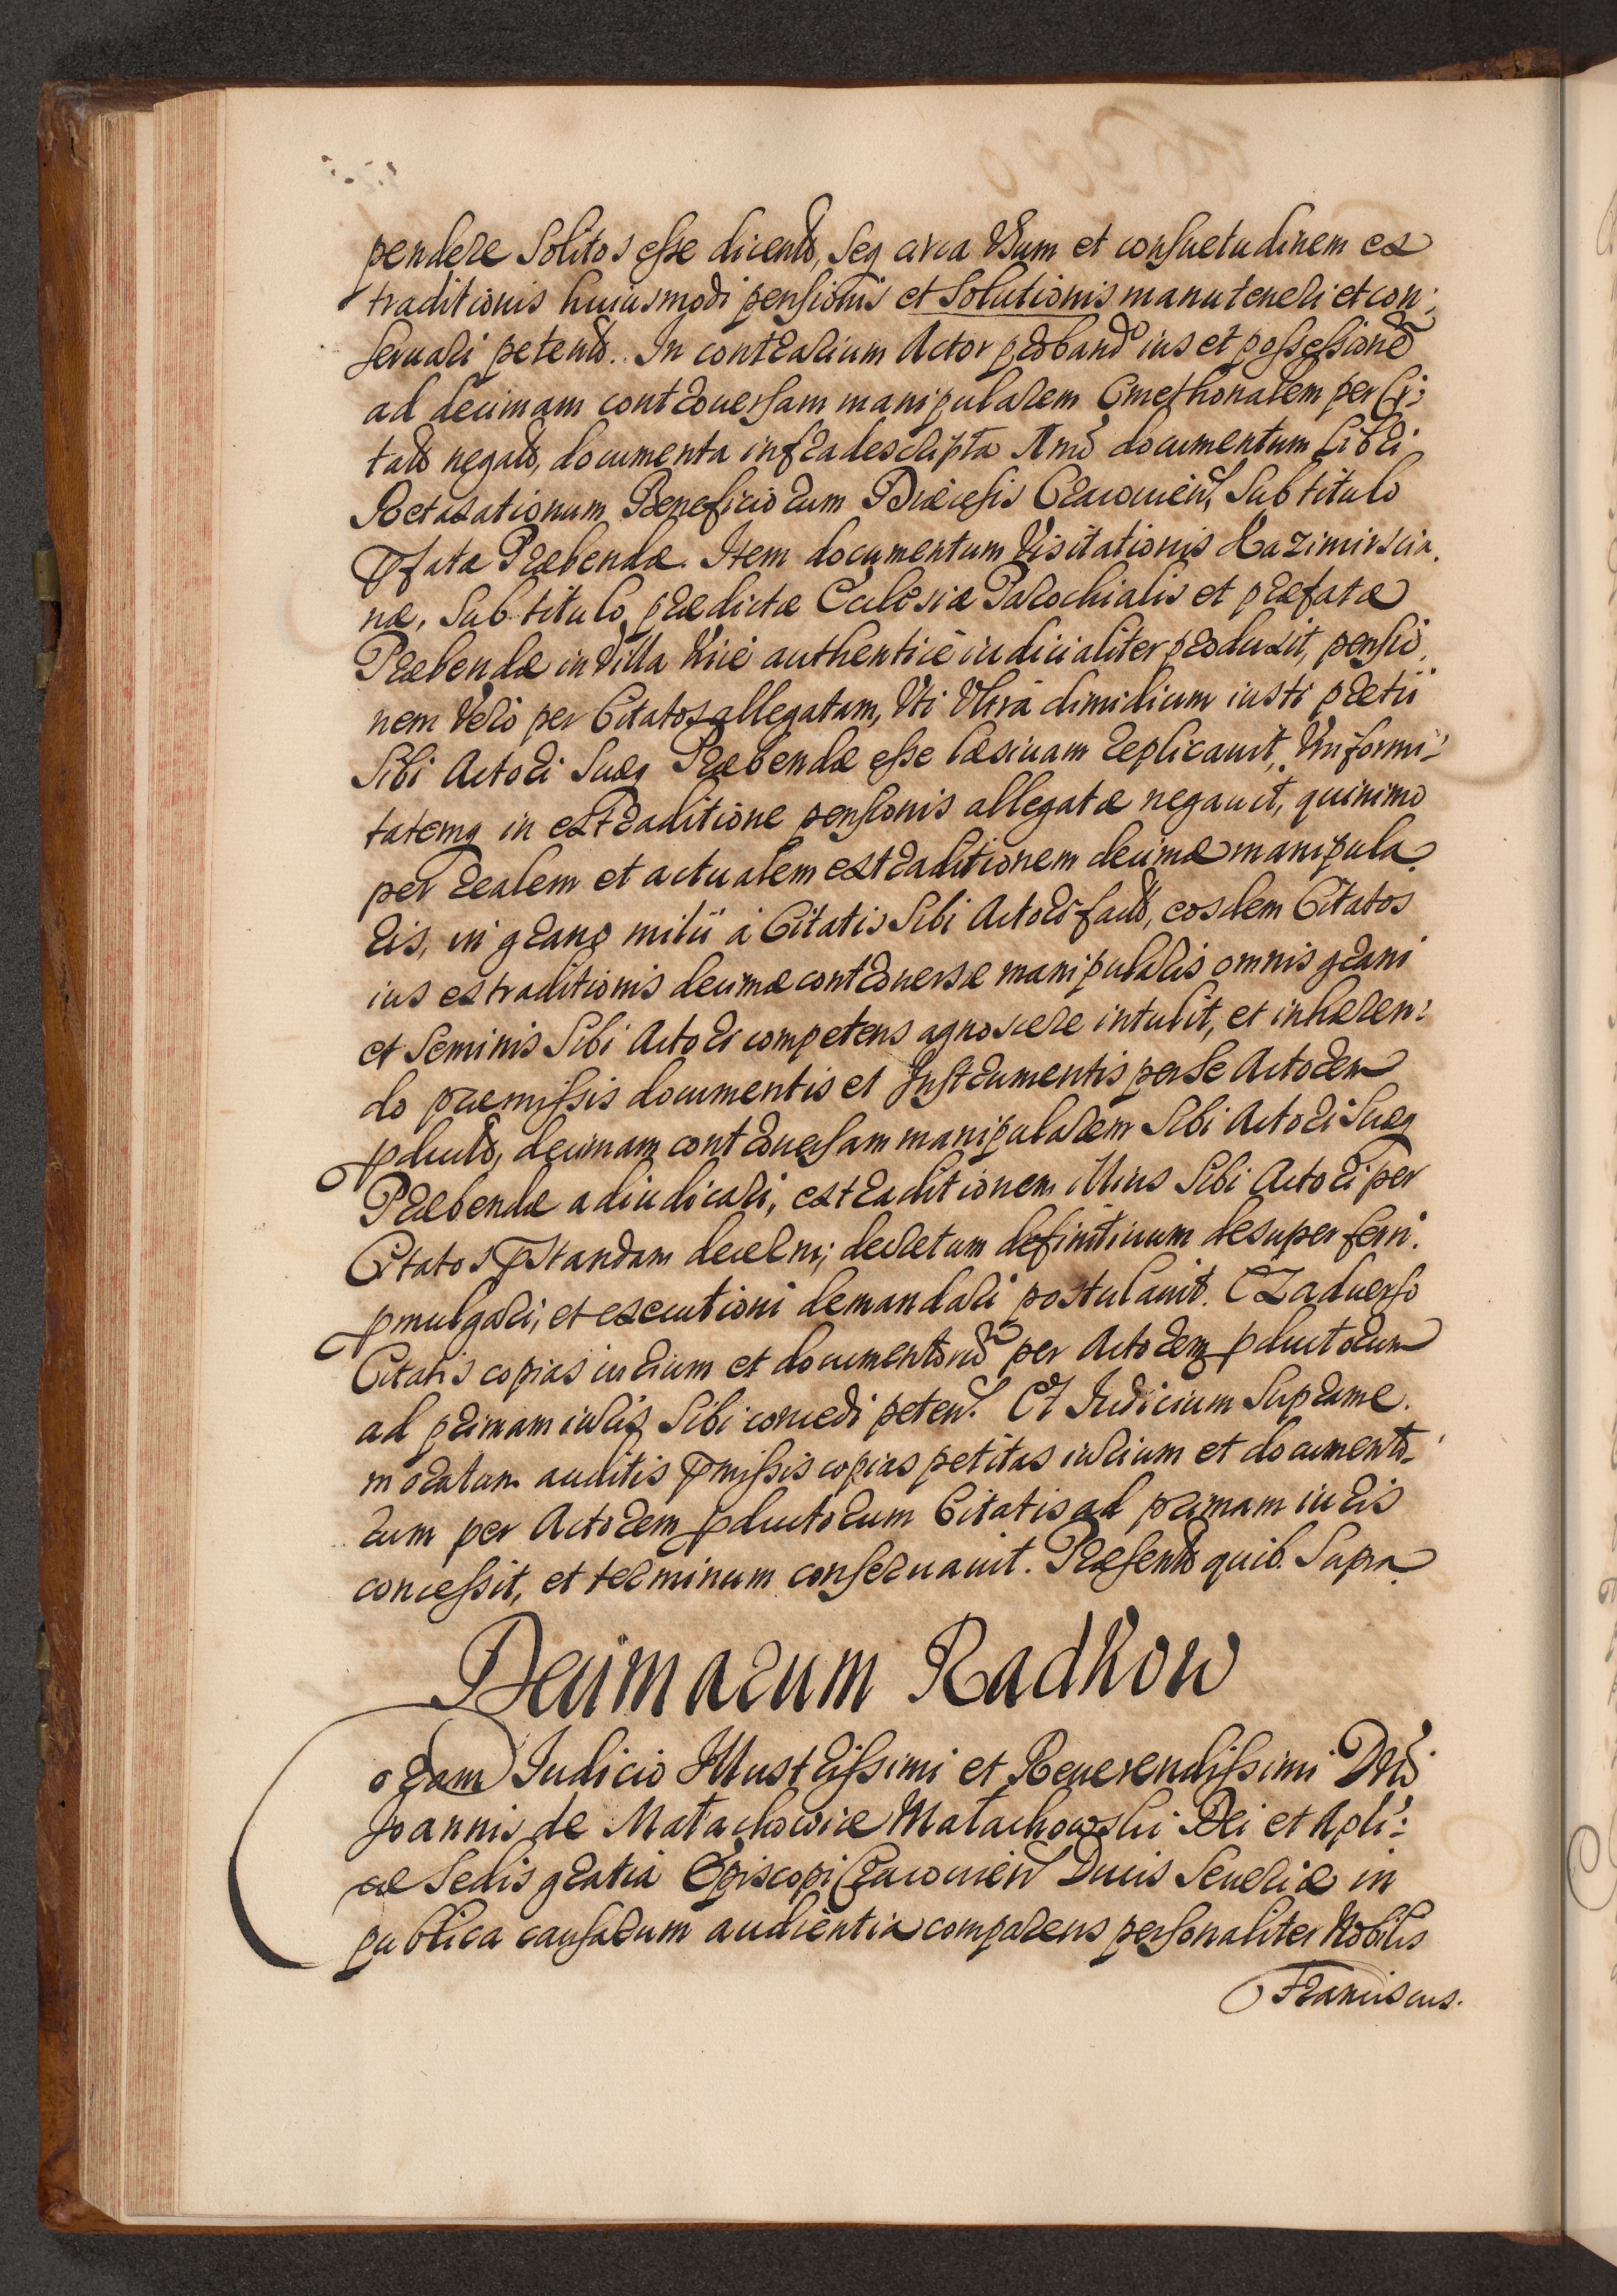 pendere Solitos esse dicend, Seq circa Usum et consuetudinem ex
traditionis huiusmodi pensionis et Solutionis manuteneri et con:
seruari petend. In contrarium Actor proband ius et possessionẽ
ad decimam controuersam manipularem Cmethonalem per Ci:
tatos negatã, documenta infradescripta documentum Libri
Retaxationum Beneficiorum Diæcesis Cracouien, Sub titulo
pfatæ Præbendæ. Item documentum Visitationis Kazimirscia.
næ, Sub titulo prædictæ Ecclesiæ Parochialis et præfatæ
Præbendæ in Villa authenticè iudicialiter produxit, pensio.
nem Verò per Citatos allegatam, Uti Ultrà dimidium iusti pretii
Sibi Actori Suæq Præbendæ esse læsiuam replicauit, Uniformi:
tatemq in extraditione pensionis allegatæ negauit, quinimo
per realem et actualem extraditionem decimæ manipula.
ris, in grano milii à Citatis Sibi Actori fact, eosdem Citatos
ius extraditionis decimæ controuersæ manipularis omnis grani
et Seminis Sibi Actori competens agnoscere intulit, et inhæren:
do præmissis documentis et Instrumentis per Se Actorem
pduct, decimam controuersam manipularem Sibi Actori Suæq
Præbendæ adiudicari, extraditionem illius Sibi Actori per
Citatos pstandam decerni; decretum definitiuum desuper ferri.
pmulgari, et executioni demandari postulauit. Ex aduerso
Citatis copias iurium et documentorũ per Actorem pductorum
ad primam iuris Sibi concedi peten. Et Iudicium Supreme.
moratum auditis pmissis copias petitas iurium et documento.
rum per Actorem pductorum Citatis ad primam iuris
concessit, et terminum conseruauit. Præsent quib. Supra.
Decimarum Radkow
Coram Iudicio Illustrissimi et Reuerendissimi Dñi
Joannis de Małachowice Małachowski Dei et Apli:
cæ Sedis gratia Episcopi Cracouien Ducis Seueriæ in
publica causarum audientia comparens personaliter Nobilis
Franciscus.